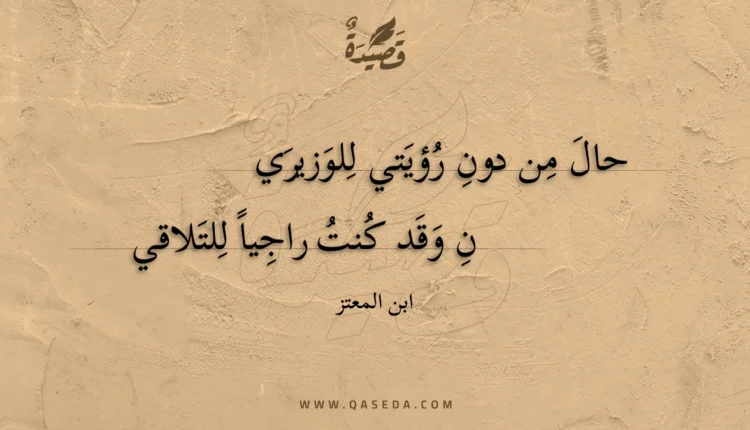 قَصِيدَةٌ
حالَ مِن دونِ رُؤيَتي لِلوَزيرَي
نِ وَقَد كُنتُ راجِياً لِلتَلاقي
ابن المعتز
WWW.QASEDA.COM